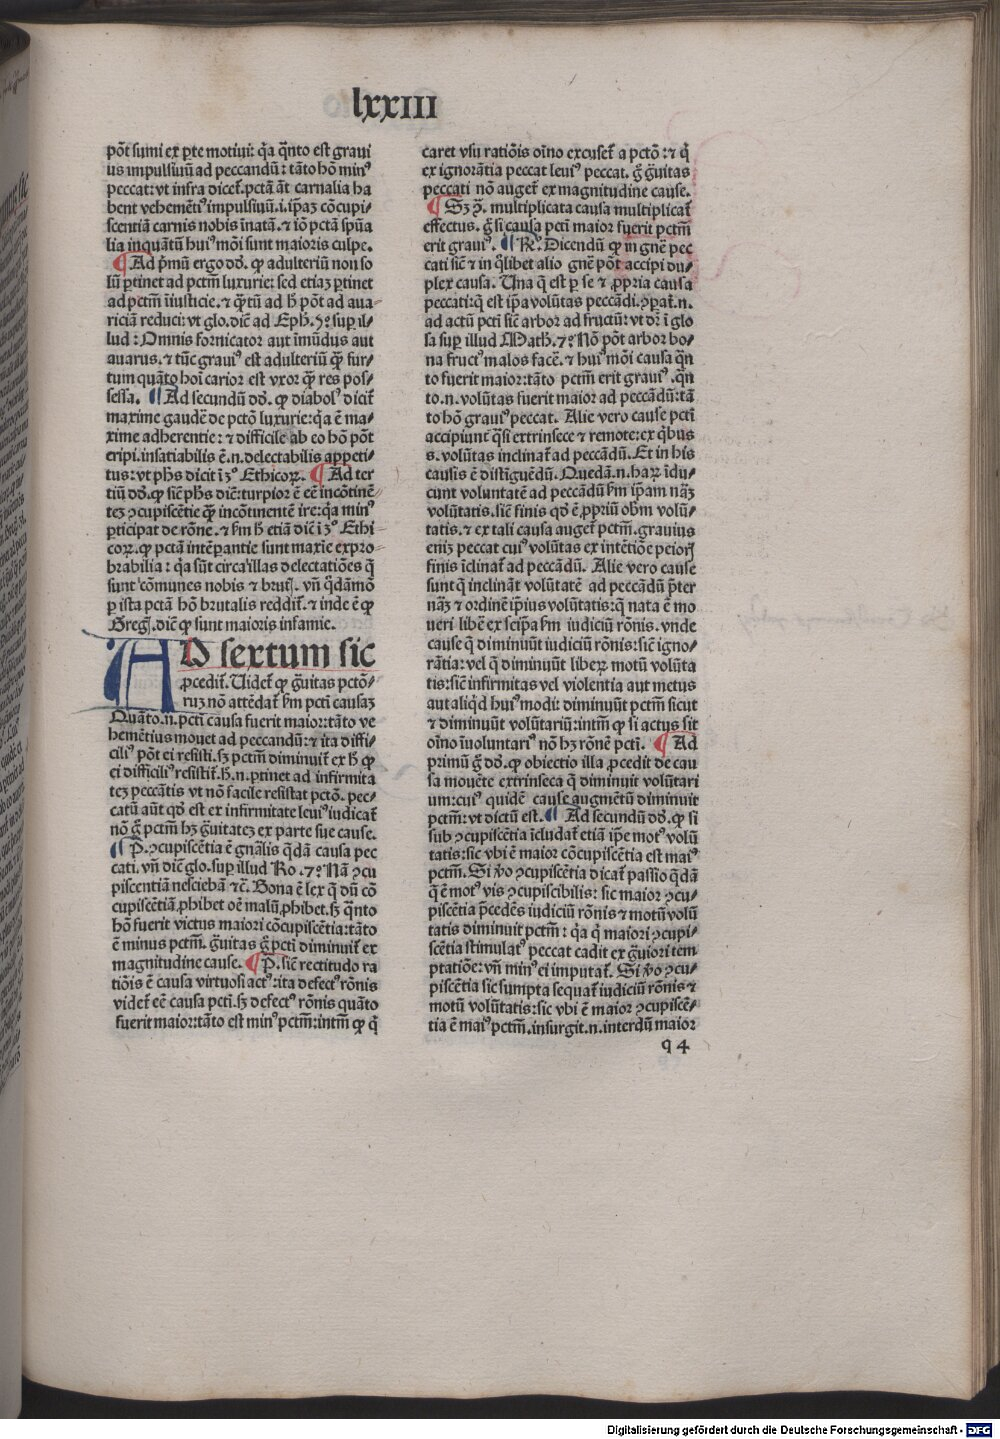 lxxIII
põt sumi ex ꝑte motiui: q̇a q̃nto est graui
us impulsiuũ ad peccandũ: tãto hõ minꝰ
peccat: vt infra dicet̃. pctã ãt carnalia ha
bent vehemẽtiꝰ impulsiuũ. i. ip̃az cõcupi⸗
scentiã carnis nobis ĩnatã. ⁊ iõ pctã spũa
lia inquãtũ huiꝰmõi sunt maioris culpe.
¶ Ad pͥmũ ergo dõ. ꝙ adulteriũ non so
lũ ꝑtinet ad pctm̃ luxurie: sed etiaz ꝑtinet
ad pctm̃ ĩiusticie. ⁊ q̃ꝫtũ ad h̃ põt ad aua⸗
riciã reduci: vt glo. dic̃ ad Eph. 5º. suꝑ il⸗
lud: Omnis fornicator aut ĩmũdus aut
auarus. ⁊ tũc grauiꝰ est adulteriũ q̃ꝫ fur⸗
tum quãto hoĩ carior est vxor q̃ꝫ res pos⸗
sessa. ¶ Ad secundũ dõ. ꝙ diabolꝰ dicit̃
maxime gaudẽ de pctõ luxurie: q̇a ẽ ma⸗
xime adherentie: ⁊ difficile ab eo hõ põt
eripi. insatiabilis ẽ. n. delectabilis appeti⸗
tus: vt ph̃s dicit ĩ 3º Ethicoꝝ. ¶ Ad ter
tiũ dõ. ꝙ sic̃ ph̃s dic̃: turpior ẽ eẽ incõtinẽ⸗
tez ꝯcupiscẽtie q̃ꝫ incõtinentẽ ire: q̇a minꝰ
ꝑticipat de rõne. ⁊ ẜm h̃ etiã dic̃ ĩ 3º Ethi
coꝝ. ꝙ pctã intẽꝑantie sunt maxĩe expro⸗
brabilia: q̇a sũt circa illas delectatiões q̃
sunt cõmunes nobis ⁊ brutꝭ. vñ q̇dãmõ
ꝑ ista pctã hõ brutalis reddit̃. ⁊ inde ẽ ꝙ
Gregꝭ. dic̃ ꝙ sunt maioris infamie.
AD sextum sic
ꝓcedit̃. Videt̃ ꝙ g̃uitas pctõ⸗
rum nõ attẽdat̃ ẜm pcti causaz
Quãto. n. pcti causa fuerit maior: tãto ve
hemẽtius mouet ad peccandũ: ⁊ ita diffi⸗
ciliꝰ põt ei resisti. sꝫ pctm̃ diminuit̃ ex h̃ ꝙ
ei difficiliꝰ resistit̃. h̃. n. ꝑtinet ad infirmita
tez peccãtis vt nõ facile resistat pctõ. pec⸗
catũ aũt qd̃ est ex infirmitate leuiꝰ iudicat̃
nõ g̃ pctm̃ hꝫ g̃uitatez ex parte sue cause.
¶ P. ꝯcupiscẽtia ẽ gñalis q̃dã causa pec
cati. vñ dic̃ glo. suꝑ illud Ro. 7º Nã ꝯcu
piscentiã nesciebã ⁊c̃. Bona ẽ lex q̃ dũ cõ
cupiscẽtiã ꝓhibet oẽ malũ ꝓhibet. sꝫ q̃nto
hõ fuerit victus maiori cõcupiscẽtia: tãto
ẽ minus pctm̃. g̃uitas g̃ pcti diminuit̃ ex
magnitudine cause. ¶ P. sic̃ rectitudo ra
tiõis ẽ causa virtuosi actꝰ: ita defectꝰ rõnis
videt̃ eẽ causa pcti. sꝫ defectꝰ rõnis quãto
fuerit maior: tãto est minꝰ pctm̃: intm̃ ꝙ q̇
caret vsu ratiõis oĩno excuset̃ a pctõ: ⁊ q̇
ex ignorãtia peccat leuiꝰ peccat. g̃ g̃uitas
peccati nõ auget̃ ex magnitudine cause.
¶ Sꝫ ꝯ̃. multiplicata causa multiplicat̃
effectus. g̃ si causa pcti maior fuerit pctm̃
erit grauiꝰ. ¶ Rº. Dicendũ ꝙ in gñe pec
cati sic̃ ⁊ in q̃libet alio gñe põt accipi du⸗
plex causa. Una q̃ est ꝑ se ⁊ ꝓpria causa
peccati: q̃ est ip̃a volũtas peccãdi. ꝯꝑat̃. n.
ad actũ pcti sic̃ arbor ad fructũ: vt dr̃ ĩ glo
sa suꝑ illud Math. 7º Nõ põt arbor bo⸗
na fructꝰ malos facẽ. ⁊ huiꝰmõi causa q̃n
to fuerit maior: tãto pctm̃ erit grauiꝰ. q̃n
to. n. volũtas fuerit maior ad peccãdũ: tã
to hõ grauiꝰ peccat. Alie vero cause pcti
accipiunt̃ q̃si extrinsece ⁊ remote: ex q̇bus
s. volũtas inclinat̃ ad peccãdũ. Et in his
causis ẽ distĩguẽdũ. Quedã. n. haꝝ ĩdu⸗
cunt voluntatẽ ad peccãdũ ẜm ip̃am nãꝫ
volũtatis. sic̃ finis qd̃ ẽ ꝓpriũ obm̃ volũ⸗
tatis. ⁊ ex tali causa auget̃ pctm̃. grauius
enim peccat cuiꝰ volũtas ex intẽtiõe peiorꝭ
finis ĩclinat̃ ad peccãdũ. Alie vero cause
sunt q̃ inclinãt volũtatẽ ad peccãdũ p̃ter
nãꝫ ⁊ ordinẽ ip̃ius volũtatis: q̃ nata ẽ mo
ueri libẽ ex seip̃a ẜm iudiciũ rõnis. vnde
cause q̃ diminuũt iudiciũ rõnis: sic̃ igno⸗
rãtia: vel q̃ diminuũt liberꝝ motũ volũta
tis: sic̃ infirmitas vel violentia aut metus
aut aliqd̃ huiꝰmodi: diminuũt pctm̃ sicut
⁊ diminuũt volũtariũ: intm̃ ꝙ si actus sit
oĩno ĩuoluntariꝰ nõ hꝫ rõnẽ pcti. ¶ Ad
primũ g̃ dõ. ꝙ obiectio illa ꝓcedit de cau
sa mouẽte extrinseca q̃ diminuit volũtari
um: cuiꝰ quidẽ cause augmẽtũ diminuit
pctm̃: vt dictũ est. ¶ Ad secundũ dõ. ꝙ si
sub ꝯcupiscẽtia ĩcludat̃ etiã ip̃e motꝰ volũ
tatis: sic vbi ẽ maior cõcupiscẽtia est maiꝰ
pctm̃. Si ṽo ꝯcupiscẽtia dicat̃ passio q̃dã
q̃ ẽ motꝰ vis ꝯcupiscibilis: sic maior ꝯcu⸗
piscẽtia p̃cedẽs iudiciũ rõnis ⁊ motũ volũ
tatis diminuit pctm̃: q̇a q̇ maiori ꝯcupi⸗
scẽtia stimulatꝰ peccat cadit ex g̃uiori tem
ptatiõe: vñ minꝰ ei imputat̃. Si ṽo ꝯcu⸗
piscẽtia sic sumpta sequat̃ iudiciũ rõnis ⁊
motũ volũtatis: sic vbi ẽ maior ꝯcupiscẽ⸗
tia ẽ maiꝰ pctm̃. insurgit. n. interdũ maior
q 4
Digitalisierung gefördert durch die Deutsche Forschungsgemeinschaft - DFG